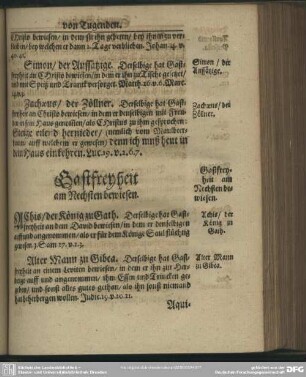 von Tugenden.
Christo bewiesen / in dem sie ihn gebeten / bey ihnen zu ver-
bleiben / bey welchen er dann 2. Tage verblieben. Johan. 4. v.
40.
Simon / der Aussätzige. Derselbige hat Gast-
freyheit an Christo bewiesen / in dem er ihn zu Tische gesetzet /
mit Speiß und Tranck versorget. Match. 26. v. 6. Marc.
Simon / der
Aussätzige.
Zachæus / der Zöllner. Derselbige hat Gast-
freyheit an Christo bewiesen / in dem er denselbigen mit Freu-
den in sein Haus genommen / als Christus zu ihm gesprochen:
Zachæe eile d hernieder / (nemlich vom Maulbeer-
baum / auff welchem er gewesen) denn ich muß heut in
dein Haus einkehren. Luc. 19. v. 1. 6. 7.
Zachæus / der
Zöllner.
Gastfreyheit
am Nechsten bewiesen.
Gastfrey-
heit am
Nechsten be-
wiesen.
AChis / der König zu Gath. Derselbige hat Gast-
freyheit an dem David bewiesen / in dem er denselbigen
auff und angenommen / als er für dem Könige Saul flüchtig
worden. 1. Sam. 27. v. 2. 3.
Achis / der
König zu
Gath.
Alter Mann zu Gibea. Derselbige hat Gast-
freyheit an einem Leviten bewiesen / in dem er ihn zur Her-
berge auff und angenommen / ihm Essen und Trincken ge-
geben / und sonst alles gutes gethan / als ihn sonst niemand
hat beherbergen wollen. Judic. 19. v. 20. 21.
Alter Mann
zu Gibea.
Aqui-